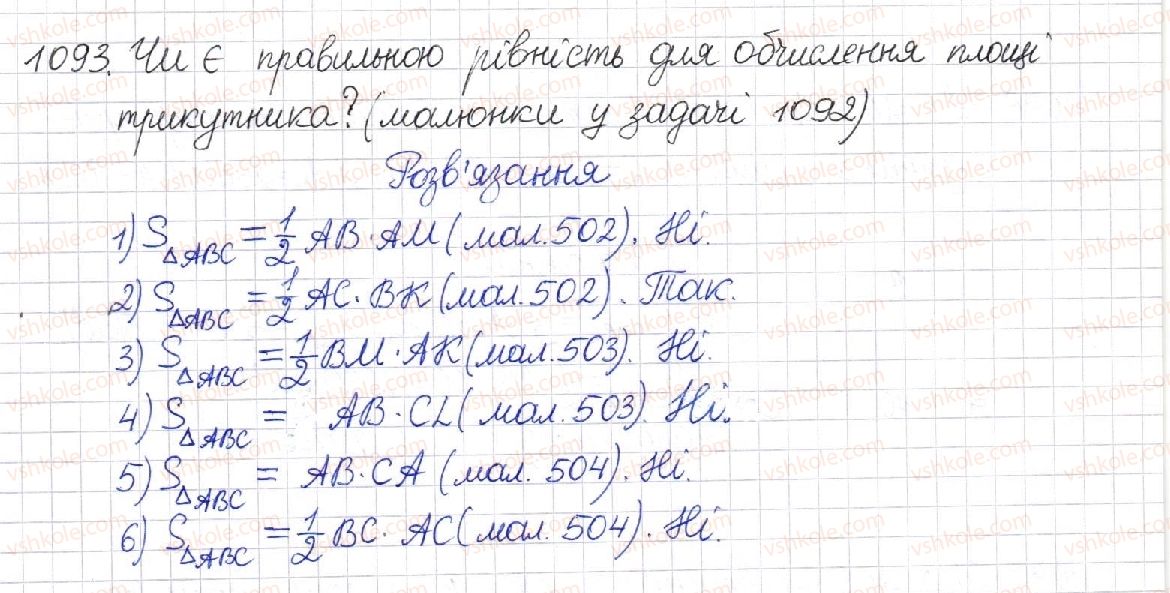 1093. Чи є правильною рівність для обчислення площі
трикутника? (малюнки у задачі 1092)
Розв'язання
1) S△ABC = 1/2 AB · AM (мал. 502). Ні.
2) S△ABC = 1/2 AC · BK (мал. 502). Так.
3) S△ABC = 1/2 BM · AK (мал. 503). Ні.
4) S△ABC = AB · CL (мал. 503). Ні.
5) S△ABC = AB · CA (мал. 504). Ні.
6) S△ABC = 1/2 BC · AC (мал. 504). Ні.
vshkole.com